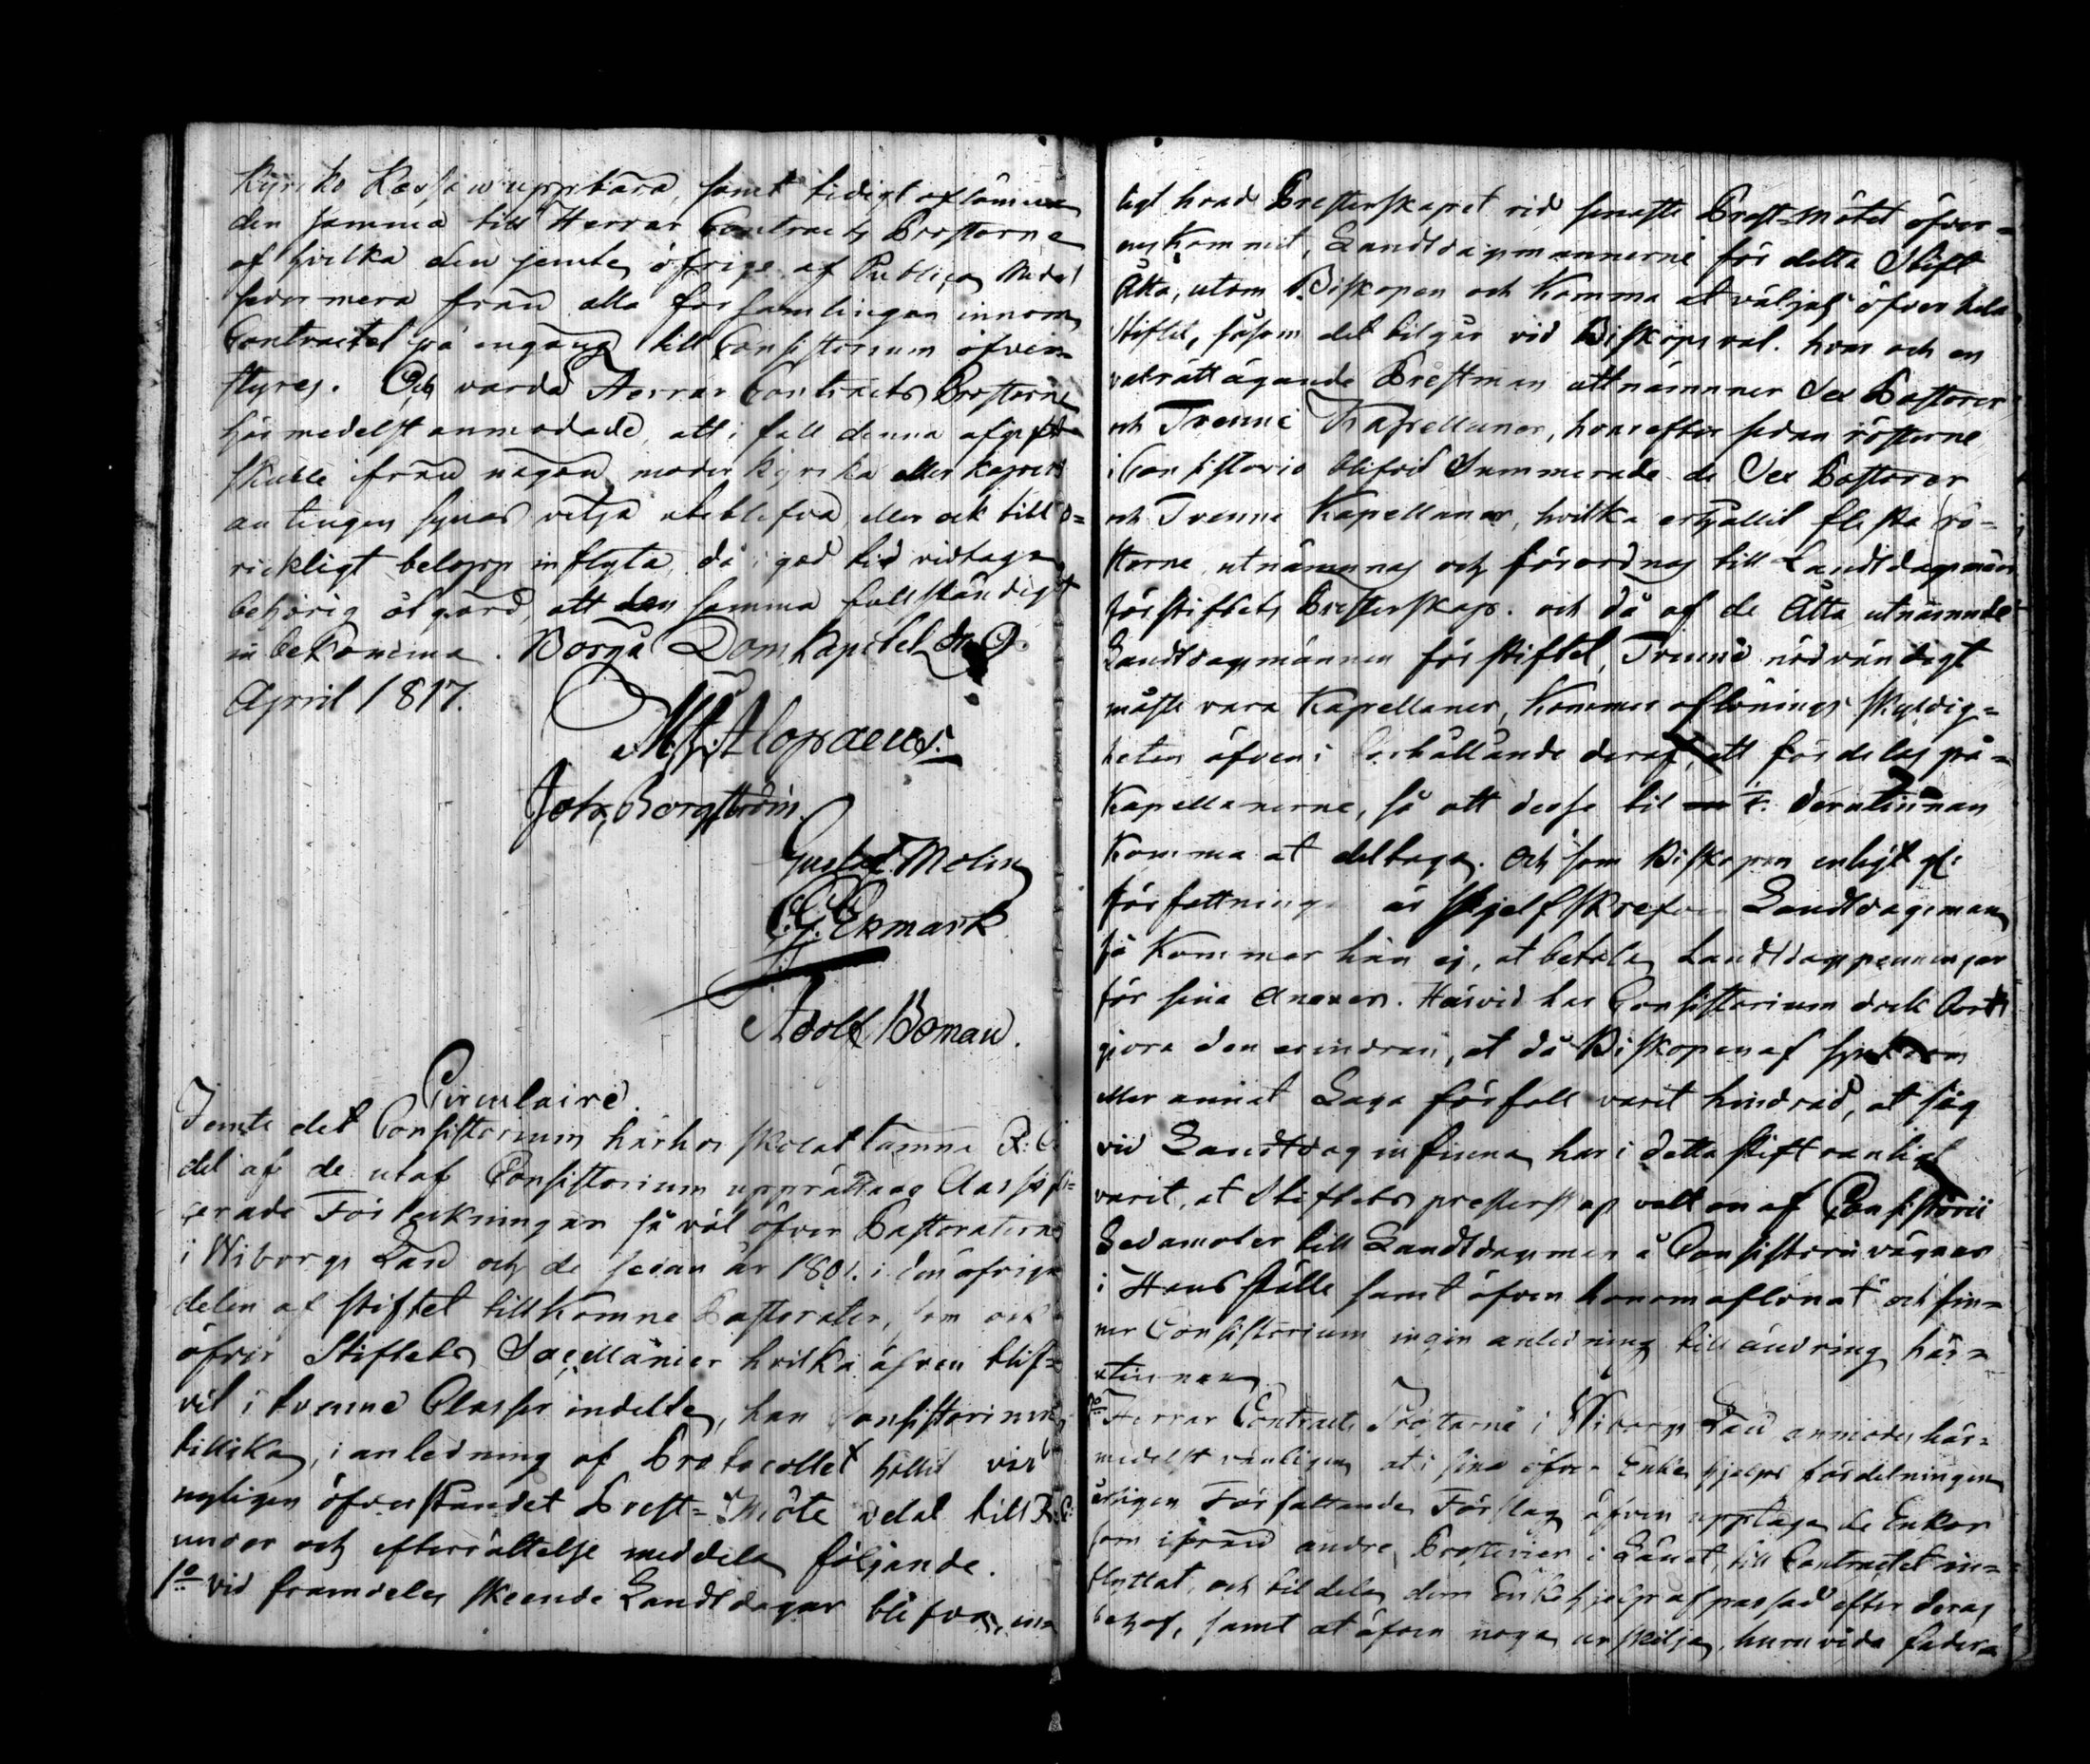 Kyrcko Kassan uppbära, samt tidigt aflämna
den samma till Herrar Contracts Prostarne
af hvilka den jemte öfrige af Publiqa Medel
sedermera från alla församlingar innom
Contractet på engång till Consistorium öfver=
styres. Och varda Herrar Contracts Prostarne
härmedelst anmodade, att i fall denna afgift
skulle ifrån någon moder kyrcka eller kapell
antingen synas vilja uteblifva, eller ock till o=
ricktigt belopp inflyta, då i god tid vidtaga
behörig åtgärd, att den samma fullständigt
inbekomma. Borgå Domkapitel d. 9.
April 1817.
M. Alopaeus.
Joh. Borgström.
Gustaf Molin
C. G. Ekmark
Adolf Boman.
Circulaire.
Jemte det Consistorium härhos skolat lämna R. C.
del af de utaf Consistorium upprättade Classifi=
cerade Förteckningar så väl öfver Pastoraterne
i Wiborgs Län och de sedan år 1801. i den öfriga
delen af stiftet tillkomne Pastorater, som ock
öfver Stiftets Sacellanier hvilka äfven blif=
vit i tvenne Classer indelte, har Consistorium
tillika, i anledning af Protocollet hållit vid
nyligen öfverståndet Prest=Möte velat till R. C:
under och efterrättelse meddela följande.
1o vid framdeles skeende Landtdagar blifva, en=
ligt hvad Presterskapet vid senaste Prest-Mötet öfver=
enskommit, Landtdagsmännerne för detta Stift
Åtta, utom Biskopen och komma at väljas öfver hela
Stiftet, såsom det tilgår vid Biskops val. hvar och en
valrättägande Prestman utnämner Sex Pastorer
och Tvenne Kapellaner, hvarefter sedan rösterne
i Consistorio blifvit Summerade de Sex Pastorer
och Tvenne Kapellaner, hvilka erhållit flesta rö=
sterne utnämnas och förordnas till Landtdagsmän
för stiftets Presterskap. och då af de Åtta utnämnde
Landtdagsmännen för stiftet, Tvenne nödvändigt
måste vara Kapellaner, kommer aflönings skyldig=
heten äfven i förhållande deraf, att fördelas på
Kapellanerne, så att desse til derutinnan
komma at deltaga. Och som Biskopen enligt gl:
författning är sjelfskrefven Landtdagsman
så kommer han ej, at betala Landtdagspenningar
för sina Annexer. Härvid har Consistorium dock bort
göra den erindran, at då Biskopen af sjukdom
eller annat Laga förfall varit hindrad, at sig
vid Landtdag infinna, har i detta stift vanligt
varit, at Stiftets presterskap valt en af Consistorii
Ledamoter till Landtdagsman å Consistorii vägnar
i Hans ställe samt äfven honom aflönat och fin=
ner Consistorium ingen anledning till ändring här=
utinnan
2o Herrar Contracts Prostarne i Wiborgs Län anmodas här=
medelst vänligen at i sina öfver Enke hjelps fördelningen
årligen Författande Förslag äfven upptaga de Enkor
som ifrån andre Prosterier i Länet till Contractet in=
flyttat, och tildela dem Enkehjelp afpassad efter deras
behof, samt at äfven noga urskilja, huruvida sådana